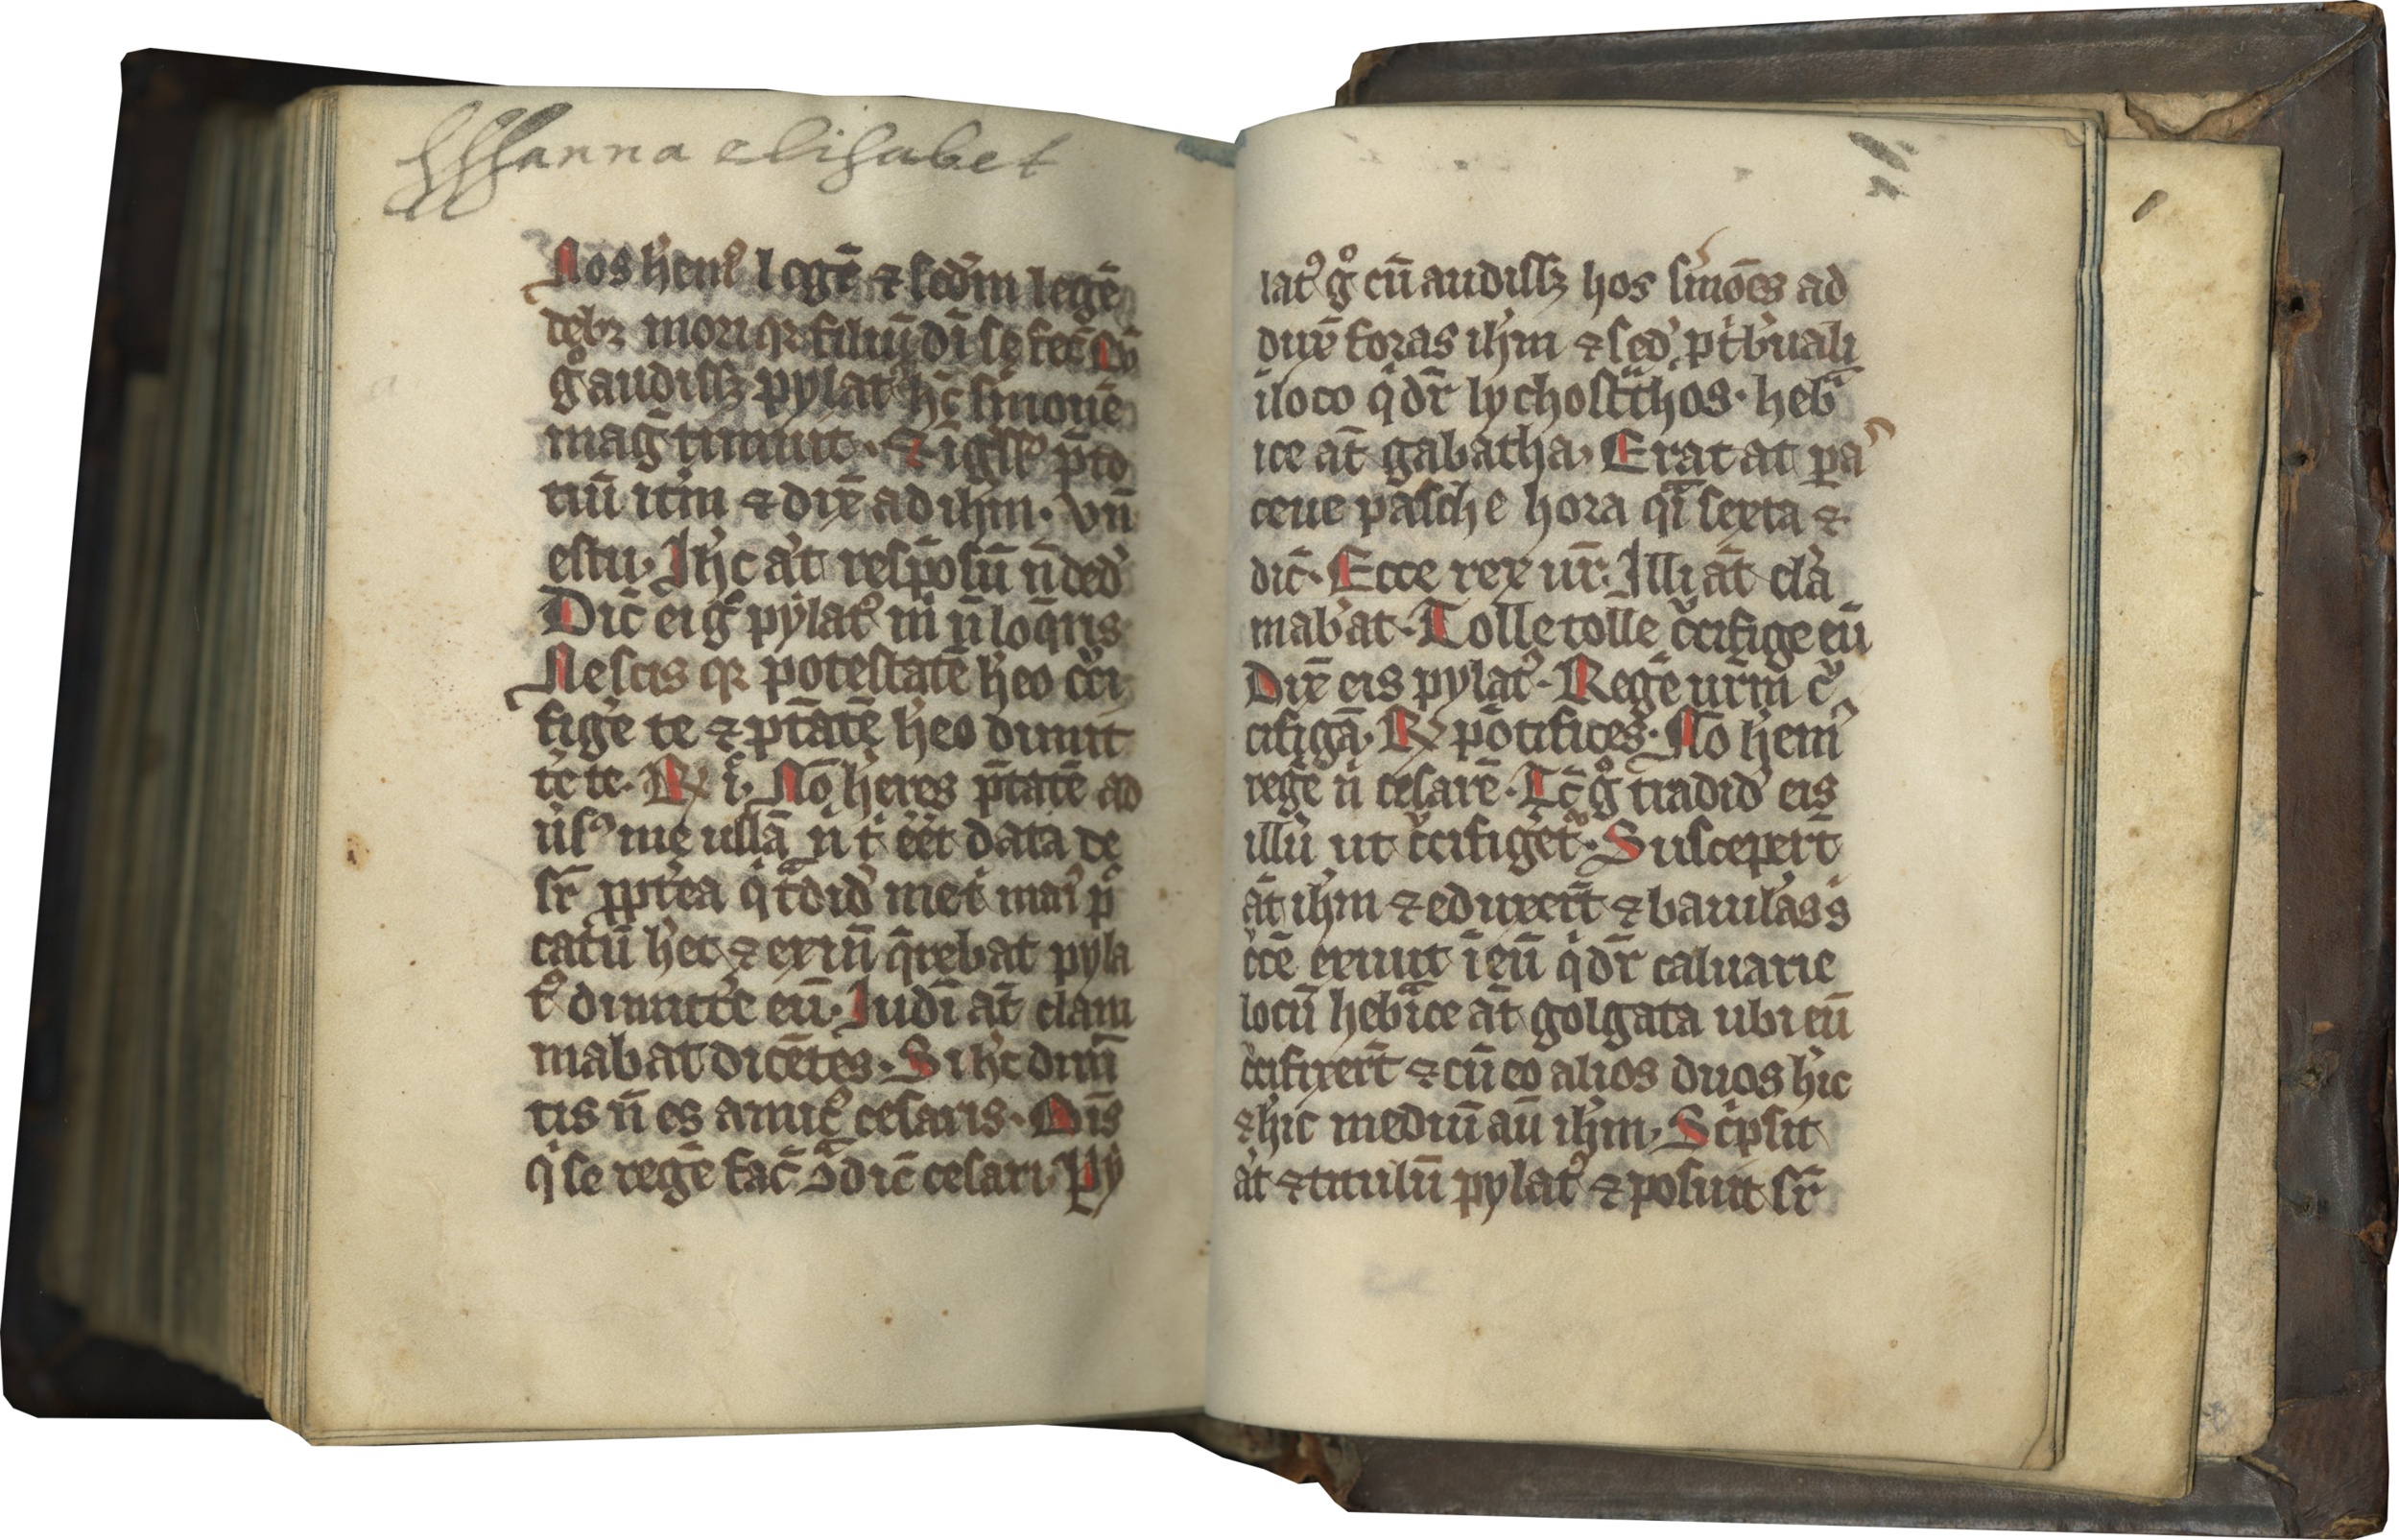 Hanna elisabet
Nos hem⁹ legē ⁊ scd̄m legē
debꝫ mori qꝛ filiū dī se fec̄ Cū
gͦ audissꝫ pylat⁹ hc̄ smonē
maḡ timuit· ⁊ īgss⁹ p̄to
riū itm̄ ⁊ dix̄ ad ihm̄· vn̄
es tu· Ihc̄ at̄ respōsū n̄ ded̓
Dic̄ ei gͦ pylat⁹ m̄ n̄ loq̄ris
Nescis qꝛ potestatē heo cͨci
fige te ⁊ p̄tatē heo dimit
te te· Rx̄ i· Nō heres p̄tatē ad
ūs⁹ me ullā n̄ t̄ eet data de
sr̄ ꝓpt̓ea q̄ t̄did̓ me t̄ mai⁹ p̄
catū het ⁊ exin̄ q̄rebat pyla
t⁹ dimitt̓e eū· Iudī at̄ clam
mabat dicētes· Si hc̄ dim̄
tis n̄ es amic⁹ cesaris· Oīs
q̄ se regē fac̄ ɔ̄dic̄ cesari· Py
lat⁹ gͦ cū audissꝫ hos smōes ad
dux̄ foras ihm̄ ⁊ sed̓ p t̄buali
ī loco q̄ dr̄ lychostͣthos· heb̄
ice at̄ gabatha· Erat at̄ pa
ceue pasche hora qͣi sexta ⁊
dic̄· Ecce rex ur̄· Illi at̄ cla
mabat· Tolle tolle cͨcifige eū
Dix̄ eis pylat⁹· Regē urm̄ cͨ
cifigā· Rx̄ pōtifices· Nō hem⁹
regē n̄ cesarē· Tc̄ gͦ tradid̓ eis
illū ut cͨcifiget̄· Suscepert̄
at̄ ihm̄ ⁊ eduxert̄ ⁊ baiulās s̄
cͨcē exiuit ī eū q̄ dr̄ caluarie
locū hebͣice at̄ golgata ubi eū
cͨcifixert̄ ⁊ cū eo alios duos hīc
⁊ hīc mediū aū ihm̄· Scͥpsit
at̄ ⁊ titulū pylat⁹ ⁊ posuit sr̄